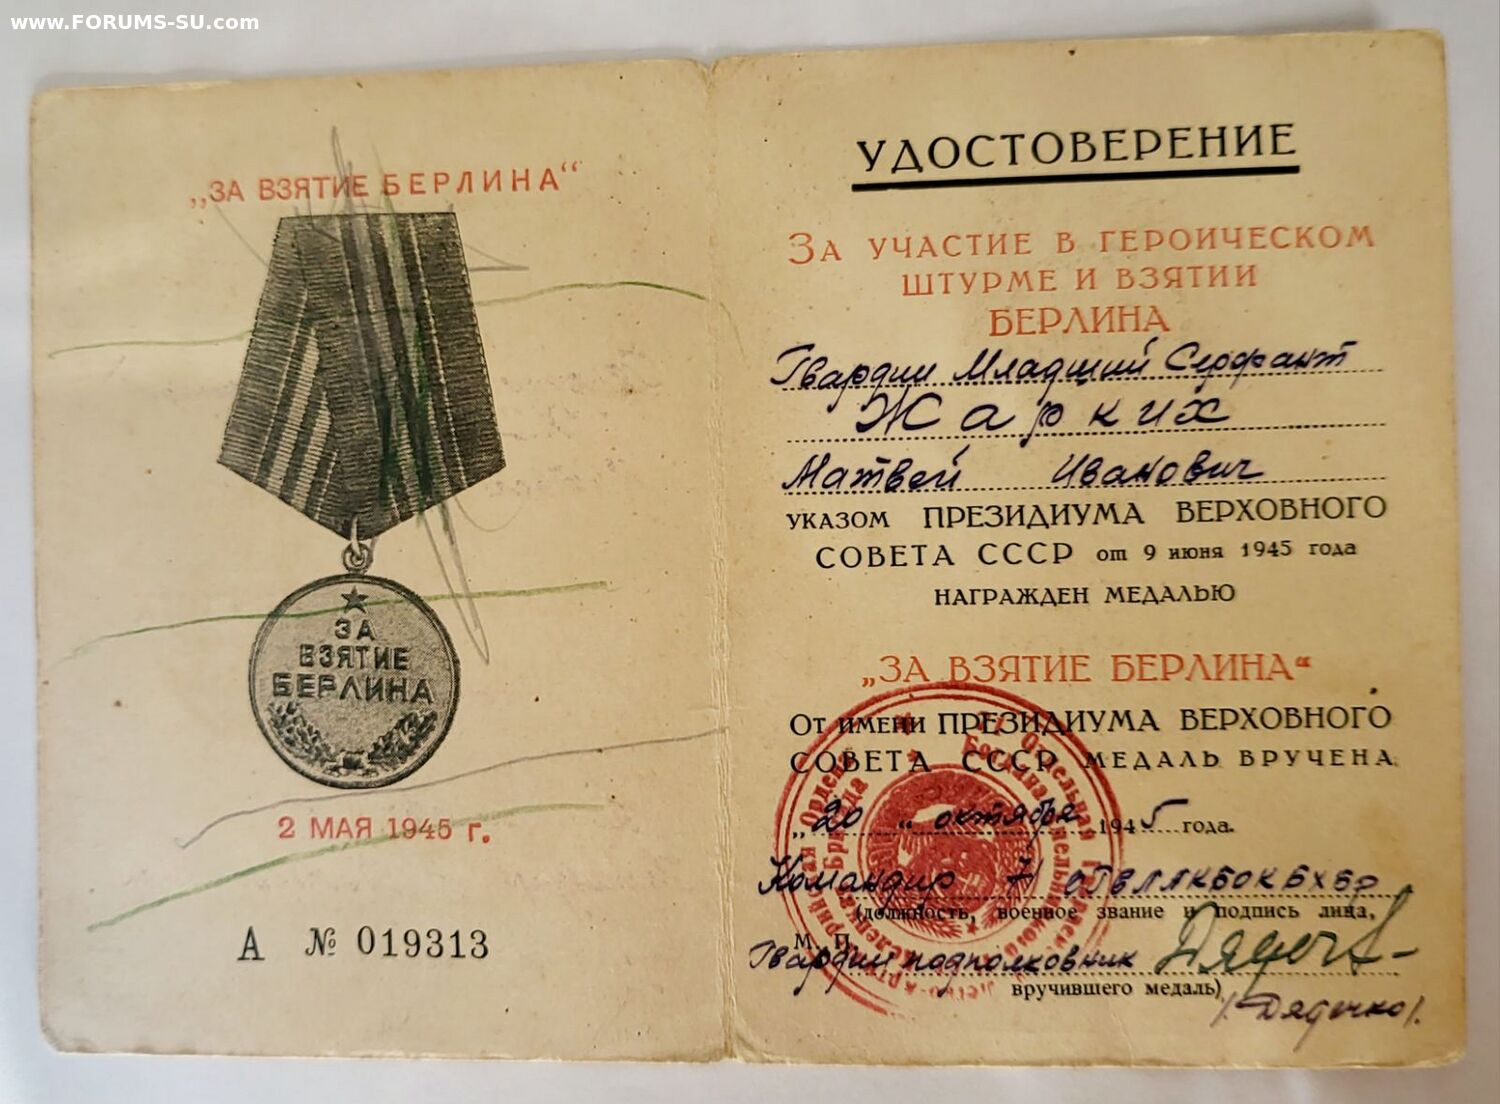 www.FORUMS-SU.com
„ЗА ВЗЯТИЕ БЕРЛИНА“
ЗА
ВЗЯТИЕ
БЕРЛИНА
2 МАЯ 1945 г.
А № 019313
УДОСТОВЕРЕНИЕ
ЗА УЧАСТИЕ В ГЕРОИЧЕСКОМ
ШТУРМЕ И ВЗЯТИИ
БЕРЛИНА
Гвардии Младший Сержант
Жарких
Матвей Иванович
УКАЗОМ ПРЕЗИДИУМА ВЕРХОВНОГО
СОВЕТА СССР от 9 июня 1945 года
НАГРАЖДЕН МЕДАЛЬЮ
„ЗА ВЗЯТИЕ БЕРЛИНА“
ОТ ИМЕНИ ПРЕЗИДИУМА ВЕРХОВНОГО
СОВЕТА СССР МЕДАЛЬ ВРУЧЕНА
„20 “ октября 1945 года.
Командир 71
(должность, военное звание и подпись лица,
М. П.
Гвардии подполковник
вручившего медаль)
/Дядечко/.